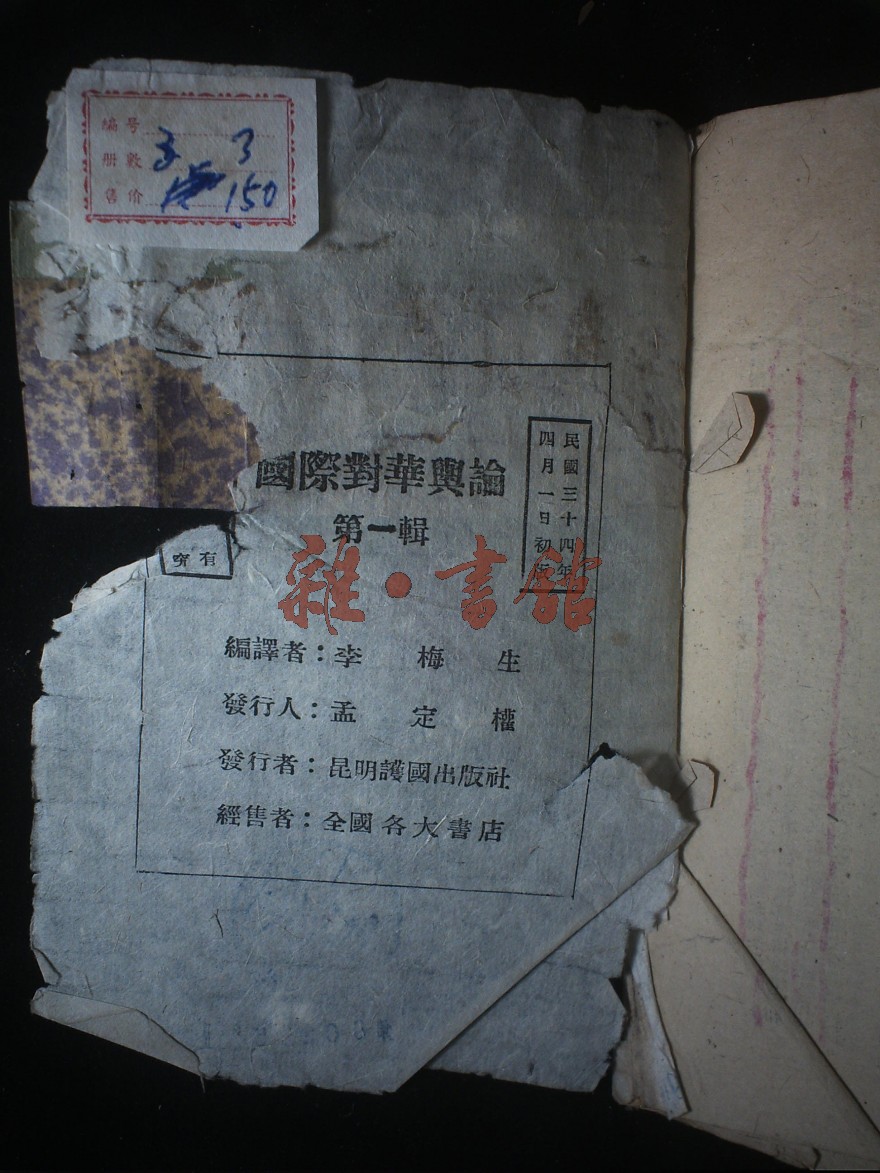 編号 3
册數
售价 150
國際對華輿論
第一輯
民國三十四年
四月一日初版
有
究
雜·書館
編譯者：李梅生
發行人：孟定權
發行者：昆明護國出版社
經售者：全國各大書店